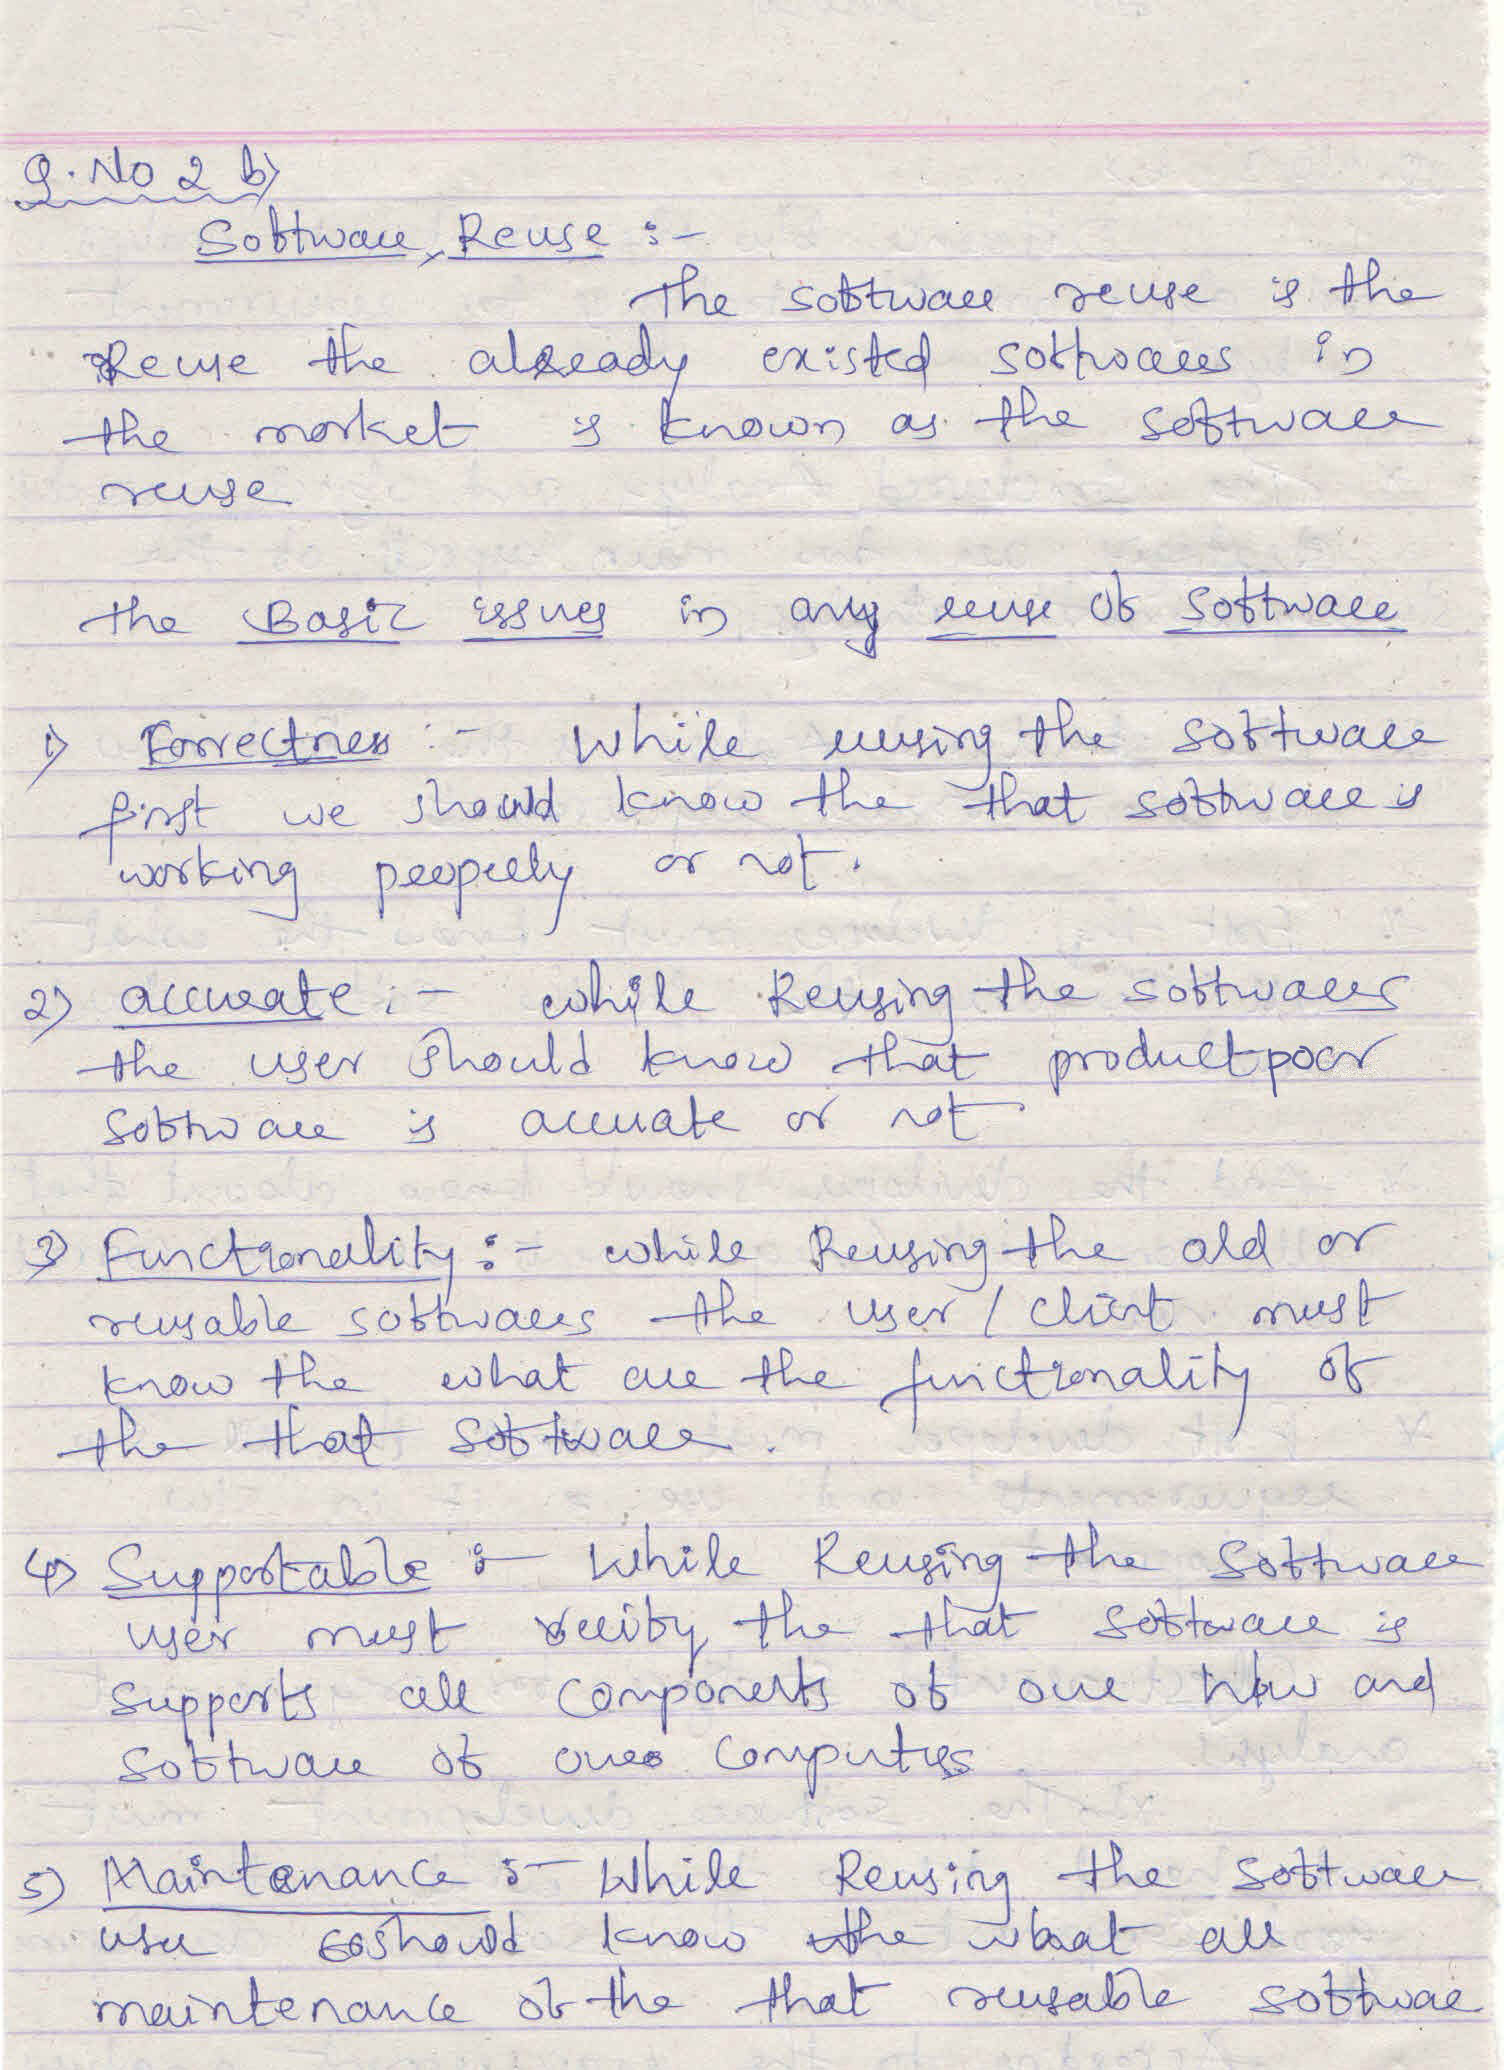 Q. No 2 b)
Software Reuse :-
The software reuse is the
Reuse the already existed softwares in
the market is known as the software
reuse
the Basic issues in any reuse of software
1) Correctness :- While reusing the software
first we should know the that software is
working properly or not.
2) accurate :- while Reusing the softwares
the user should know that product poor
software is accurate or not
3) Functionality :- while Reusing the old or
reusable softwares the user / client must
know the what are the functionality of
the that software.
4) Supportable :- While Reusing the software
user must verify the that software is
supports all components of our h/w and
software of our computers
5) Maintenance :- While Reusing the software
user should know the what all
maintenance of the that reusable software